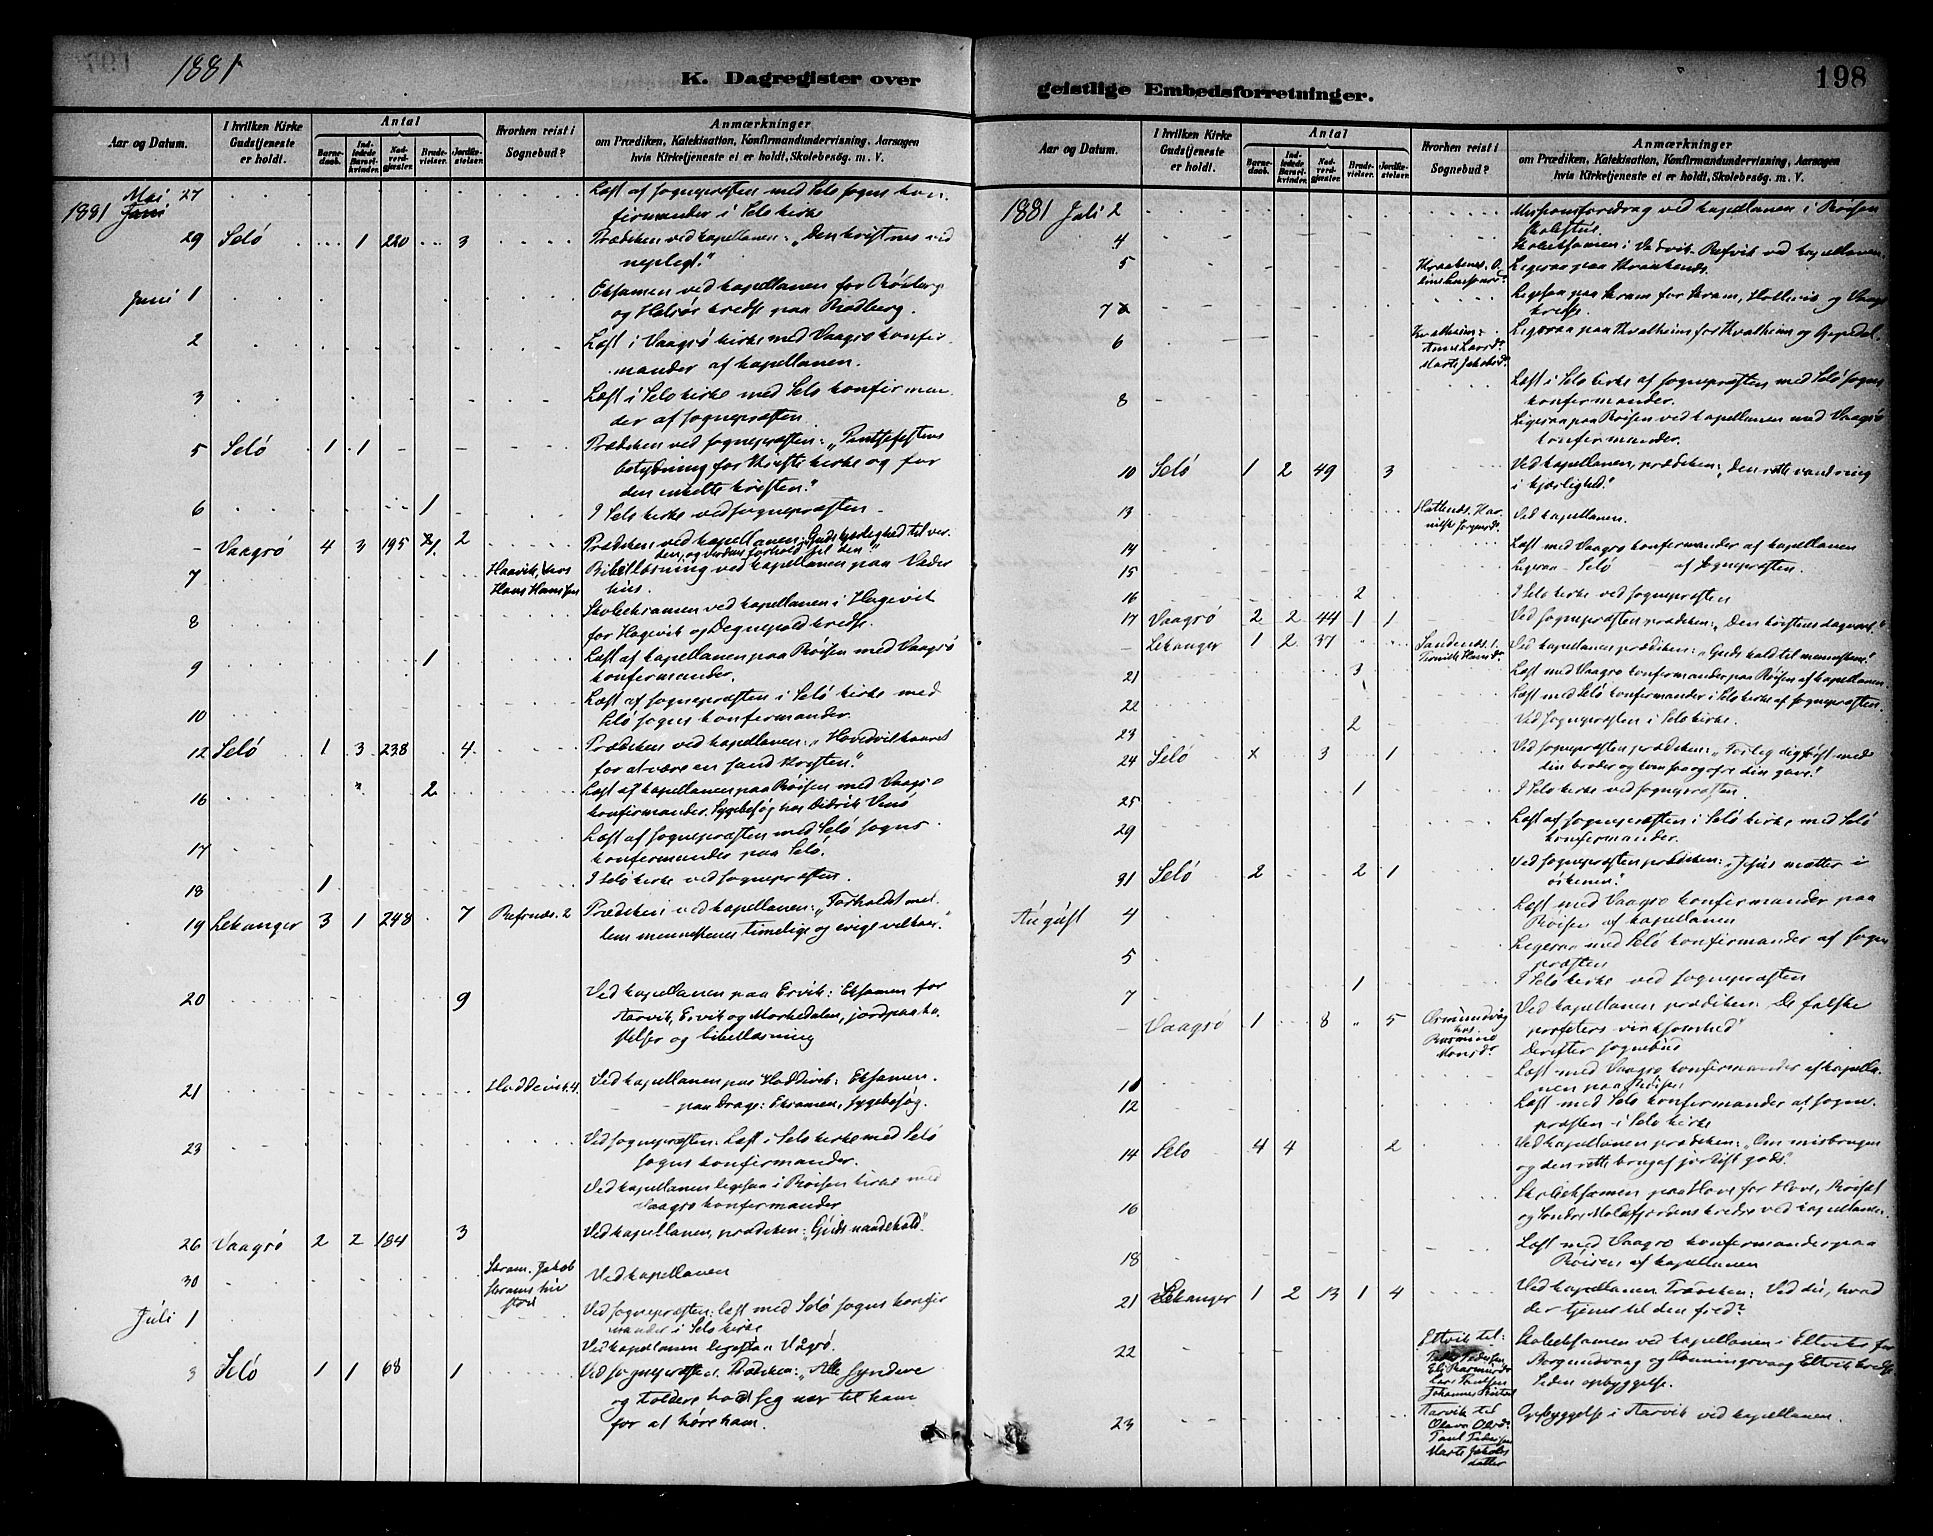 1881
K. Dagregister over
Aar og Datum.
I hvilken Kirke Gudstjeneste er holdt.
Antal
Barnedaab.
Indledede Barselkvinder.
Nadvergjæster.
Brudevielser.
Jordfæstelser.
Hvorhen reist i Sognebud?
Anmærkninger
om Prædiken, Katekisation, Konfirmandundervisning, Aarsagen
hvis Kirketjeneste ei er holdt, Skolebesög. m. V.
1881 Mai 27 Læst af sognepræsten med Selø sogns kon-
firmander i Selø kirke
29 Selö 1 220 3 Prædiken ved kapellanen: „Den kristnes vid
nepligt."
Juni 1 Eksamen ved kapellanen for
og kreds paa Rødberg.
2 Læst i Vaagsø kirke med Vaagsø konfir-
mander af kapellanen.
3 Læst i Selø kirke med Selø konfirman-
der af sognepræsten
5 Selö 1 1 Prædiken ved sognepræsten: „Pintsefestens
betydning for Kristi kirke og for
den enkelte kristen."
6 1 I Selø kirke ved sognepræsten
- Vaagsø 4 3 195 2 Prædiken ved kapellanen: Guds kjærlighed til ver-
den, og verdens forhold til den"
7 Haavik, hos
Hans Hansen Bibellæsning ved kapellanen paa Veder
hus.
8 Skoleeksamen ved kapellanen i Hagevik
for Hagevik og Degnepold kredse.
9 1 Læst af kapellanen paa Røisen med Vaagsø
konfermander.
10 Læst af sognepræsten i Selø kirke med
Selø sogns konfermander.
12 Selö 1 3 238 4 Prædiken ved kapellanen: „Hovedvilkaaret
for at være en sand Kristen."
16 2 Læst af kapellanen paa Røisen med Vaagsø
konfermander. Sygebesøg hos Didrik
17 Læst af sognepræsten med Selö sogns
konfermander paa Selö.
18 1 I Selö kirke ved sognepræsten.
19 Lekanger 3 1 248 7 Refsnæs. 2 Prædiken ved kapellanen: „Forholdet mel-
lem menneskenes timelige og evige velkaar."
20 9 Ved kapellanen paa Ervik: Eksamen for
Aarvik, Ervik og Morkedalen, jordpaaka-
stelser og bibellæsning
21 Hoddevik. 4. Ved kapellanen paa Hoddevik: Eksamen.
- - paa Drage: Eksamen, sygebesøg.
23 Ved sognepræsten: Læst i Selø kirke med Selö
sogns konfermander.
Ved kapellanen ligesaa i Røisen kirke med
Vaagsø konfermander
26 Vaagsø 2 2 184 3 Ved kapellanen, prædiken: „Guds naadekald".
30 Skram. Jakob
Skrams hu-
stru Ved kapellanen
Júli 1 Ved sognepræsten: læst med Selö sogns konfir
mander i Selø kirke
Ved kapellanen ligesaa Vågsø.
3 Selö 1 1 68 1 Ved sognepræsten. Prædiken: „Alle syndere
og toldere holdt seg nær til ham
for at höre ham.
geistlige Embedsforretninger.
198
Aar og Datum.
I hvilken Kirke Gudstjeneste er holdt.
Antal
Barnedaab.
Indledede Barselkvinder.
Nadvergjæster.
Brudevielser.
Jordfæstelser.
Hvorhen reist i Sognebud?
Anmærkninger
om Prædiken, Katekisation, Konfirmandundervisning, Aarsagen
hvis Kirketjeneste ei er holdt, Skolebesög. m. V.
1881 Juli 2 Missionsforedrag ved kapellanen i Røisen
skolestue.
4 Skoleeksamen i Vedvik. Refvik ved kapellanen.
5 Kraakenes. Ligesaa paa Kraakenes.
7 Ligesaa paa Skram for Skram, Holevik og Vaags
kreds.
6 Kvalheim:
Marte Jakobsd. Ligesaa paa Kvalheim for Kvalheim og
8 Læst i Selø kirke af sognepræsten med Selö sogns
konfermander.
Ligesaa paa Røisen ved kapellanen med Vaagsø
konfermander.
10 Selö 1 2 49 3 Ved kapellanen, prædiken: „Den rette vandring
i kjærlighed."
13 Ved kapellanen.
14 Læst med Vaagsø konfermander af kapellanen
15 Ligesaa - Selö - af sognepræsten.
16 2 I Selø kirke ved sognepræsten
17 Vaagsø 2 2 44 1 1 Ved sognepræsten prædiken: „Den kristnes
- Lekanger 1 2 37 Sandenæs. 1. Ved kapellanen prædiken: „Guds kald til menneskene!
21 3 Læst med Vaagsø konfermander paa Røisen af kapellanen.
22 Læst med Selö konfermander i Selø kirke af sognepræsten.
23 2 Ved sognepræsten i Selø kirke.
24 Selö x 3 1 Ved sognepræsten prædiken: „Forlig dig først med
din broder og kom saa og ofre din gave!"
25 1 I Selø kirke ved sognepræsten.
29 Læst af sognepræsten i Selö kirke med Selö
konfermander.
31 Selö 2 2 1 Ved sognepræsten prædiken: „Jesus mætter i
ørkenen."
Aúgúst 4 Læst med Vaagsø konfermander paa
Røisen af kapellanen
5 Ligesaa med Selö konfermander af sogne
præsten
7 1 I Selø kirke ved sognepræsten
- Vaagsø 1 8 5 Osmundvåg
hos
Rasmine
Monsd. Ved kapellanen prædiken: De falske
profeters virksomhed"
Derefter sognebud
11 Læst med Vaagsø konfermander af kapella-
nen paa Røisen
12 Læst med Selø konfermander af sogne-
præsten i Selø kirke
14 Selø 4 4 2 Ved kapellanen prædiken: „Om misbrugen
og den rette brug af jordisk gods".
16 Skoleeksamen paa Hove for Hove, Røisæt
og Søndre Moldefjordens kredse ved kapellanen.
18 Læst med Vaagsø konfermander paa
Røisen af kapellanen
21 Lekanger 1 2 13 1 4 Ved kapellanen Prædiken: Ved du, hvad
der tjener til den fred?
22 Eltvik til:
Peder Pedersen
Johannes Skoleeksamen ved kapellanen i Eltvik for
Borgundvaag og Honningsvaag Eltvik kredse
Siden opbyggelse.
23 Aarvik til
Olava Olsd.
Marte Jakobs
datter Opbyggelse i Aarvik ved kapellanen.